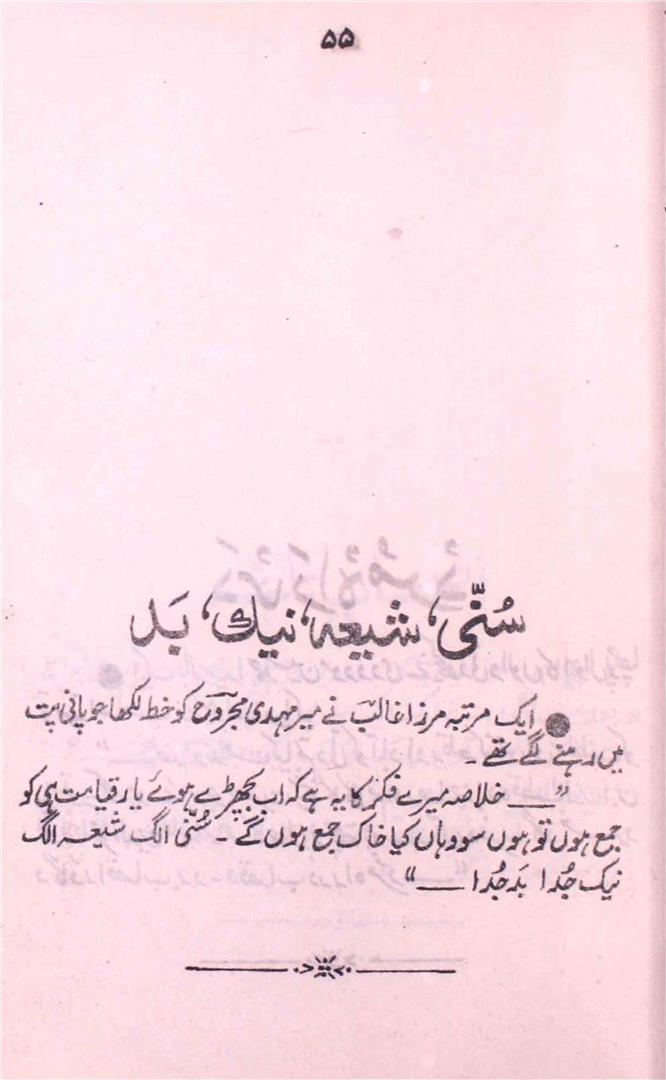 ۵۵
سُنّی، شیعہ، نیک، بَد
ایک مرتبہ مرزا غالبؔ نے میر مہدی مجروحؔ کو خط لکھا جو پانی پت
میں رہنے لگے تھے۔
"ــــ خلاصہ میرے فکر کا یہ ہے کہ اب بچھڑے ہوئے یار قیامت ہی کو
جمع ہوں تو ہوں سو وہاں کیا خاک جمع ہوں گے۔ سُنّی الگ شیعہ الگ
نیک جُدا بد جُدا ــــ"